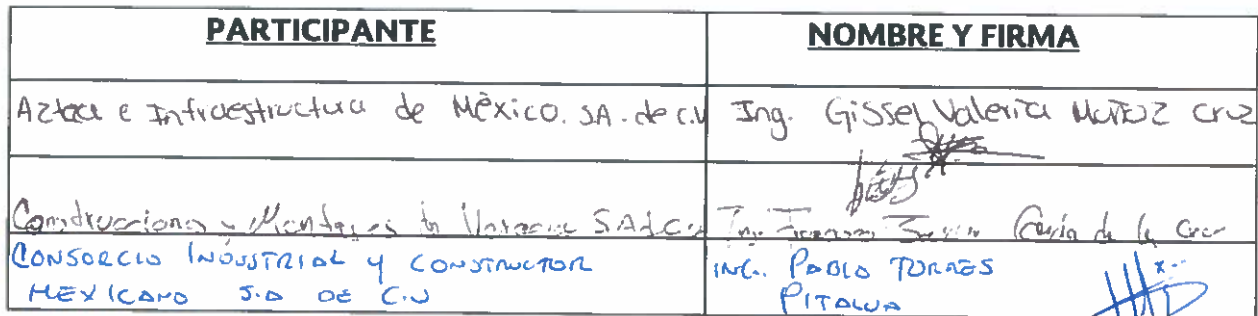 PARTICIPANTE NOMBRE Y FIRMA
Aztca e Infraestructura de México. S.A. de C.V Ing. Gissel Valeria Muñoz Cruz
Construcciones y Montajes de Veracruz S.A.d.C.V Ing. Francisco Javier García de la Cruz
CONSORCIO INDUSTRIAL Y CONSTRUCTOR ING. PABLO TORRES
MEXICANO S.A DE C.V PITALUA